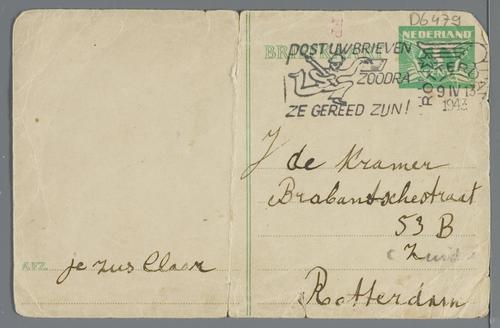 D6479
NEDERLAND
BR
POST UW BRIEVEN
ZOODRA
ZE GEREED ZIJN!
ROTTERDAM
9 IV 13
1943
J de Kramer
Brabantschestraat
53 B
Z
(Zuid)
Rotterdam
AFZ.
je zus Claar